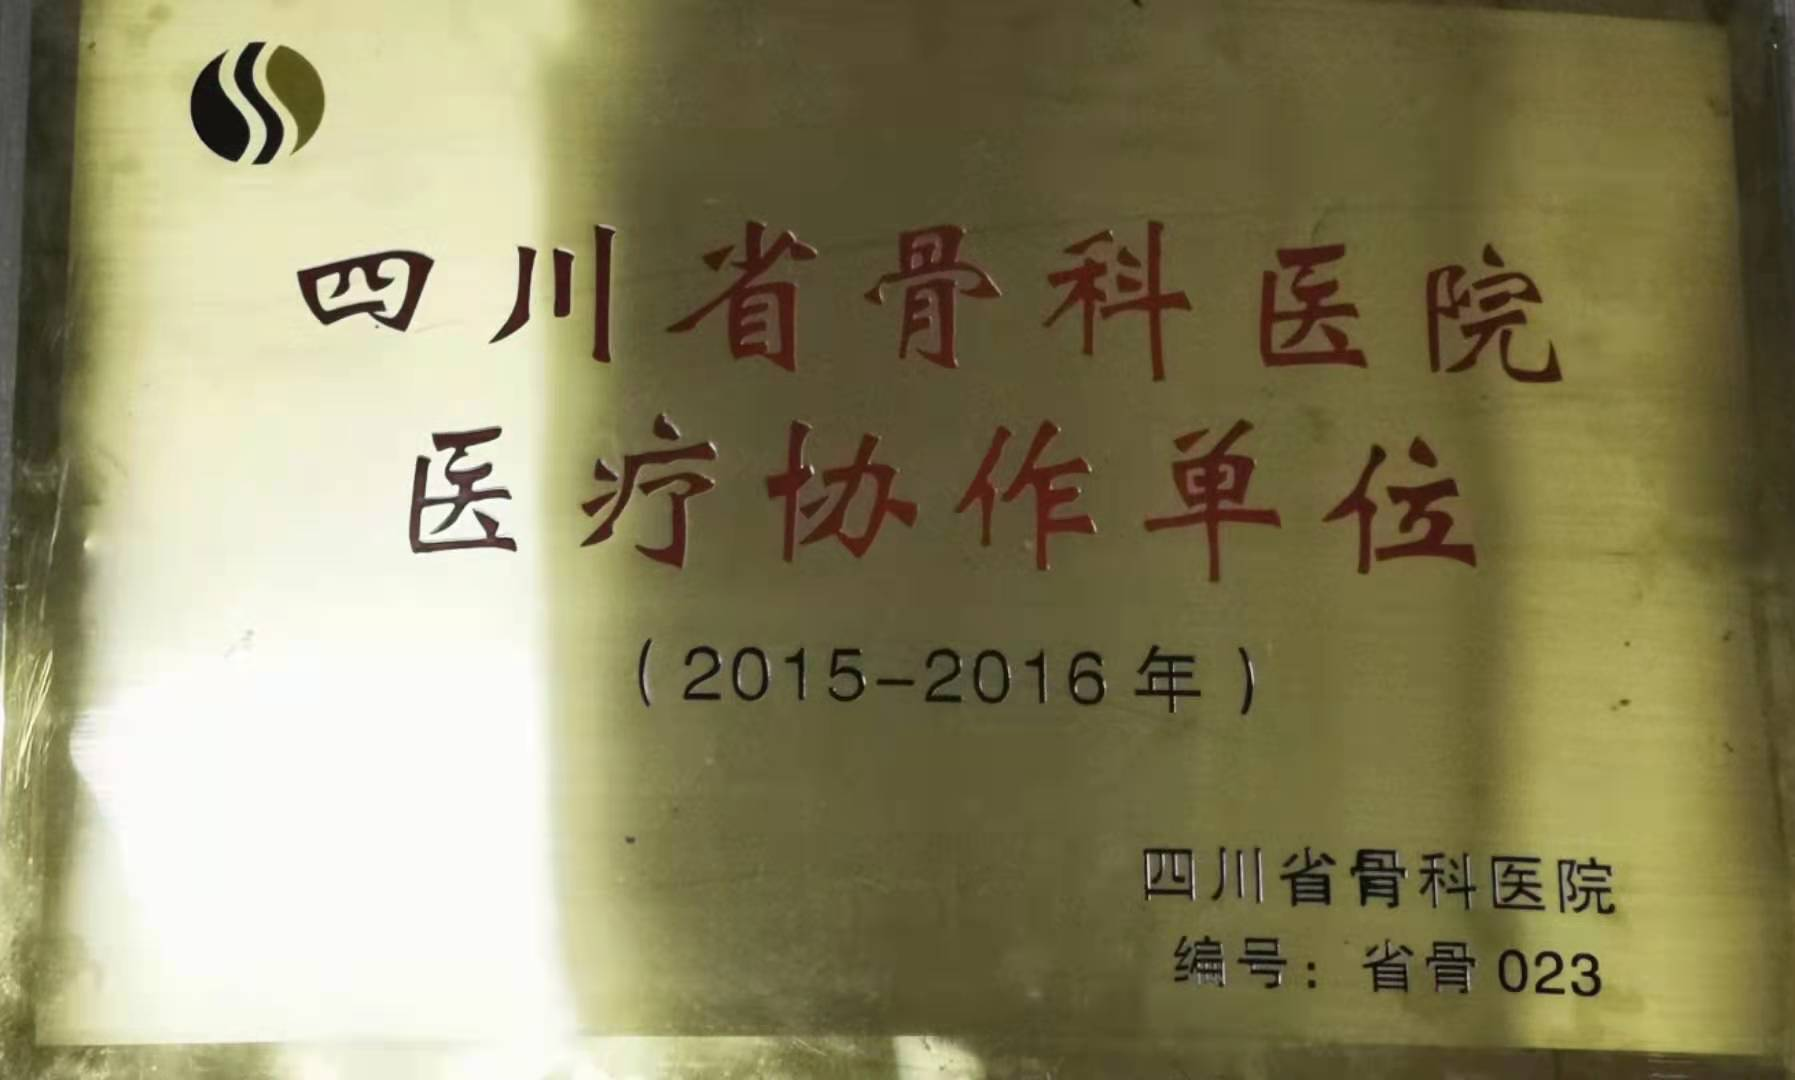 四川省骨科医院
医疗协作单位
（2015-2016年）
四川省骨科医院
编号：省骨023